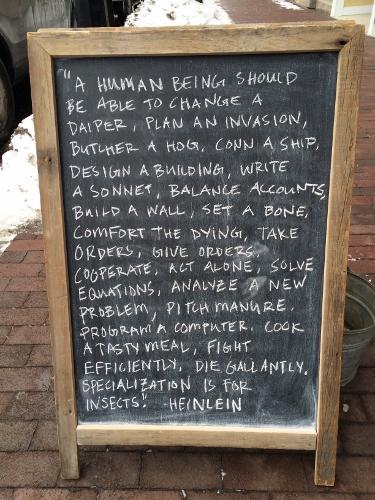 "A HUMAN BEING SHOULD
BE ABLE TO CHANGE A
DAIPER, PLAN AN INVASION,
BUTCHER A HOG, CONN A SHIP,
DESIGN A BUILDING, WRITE
A SONNET, BALANCE ACCOUNTS,
BUILD A WALL, SET A BONE,
COMFORT THE DYING, TAKE
ORDERS, GIVE ORDERS,
COOPERATE, ACT ALONE, SOLVE
EQUATIONS, ANALYZE A NEW
PROBLEM, PITCH MANURE.
PROGRAM A COMPUTER. COOK
A TASTY MEAL, FIGHT
EFFICIENTLY, DIE GALLANTLY.
SPECIALIZATION IS FOR
INSECTS." HEINLEIN